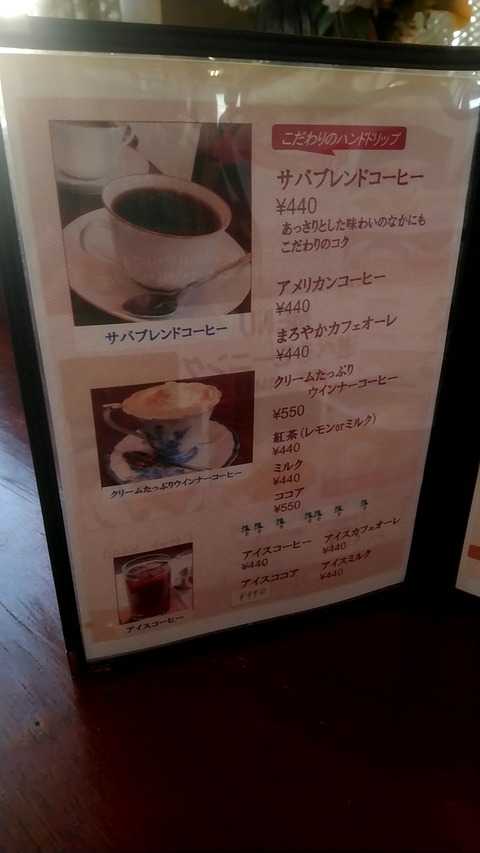 こだわりのハンドドリップ
サバブレンドコーヒー
¥440
あっさりとした味わいのなかにも
こだわりのコク
サバブレンドコーヒー
アメリカンコーヒー
¥440
まろやかカフェオーレ
¥440
クリームたっぷり
ウインナーコーヒー
¥550
クリームたっぷりウインナーコーヒー
紅茶(レモンorミルク)
¥440
ミルク
¥440
ココア
¥550
アイスコーヒー
¥440
アイスカフェオーレ
¥440
アイスココア
¥550
アイスミルク
¥440
アイスコーヒー